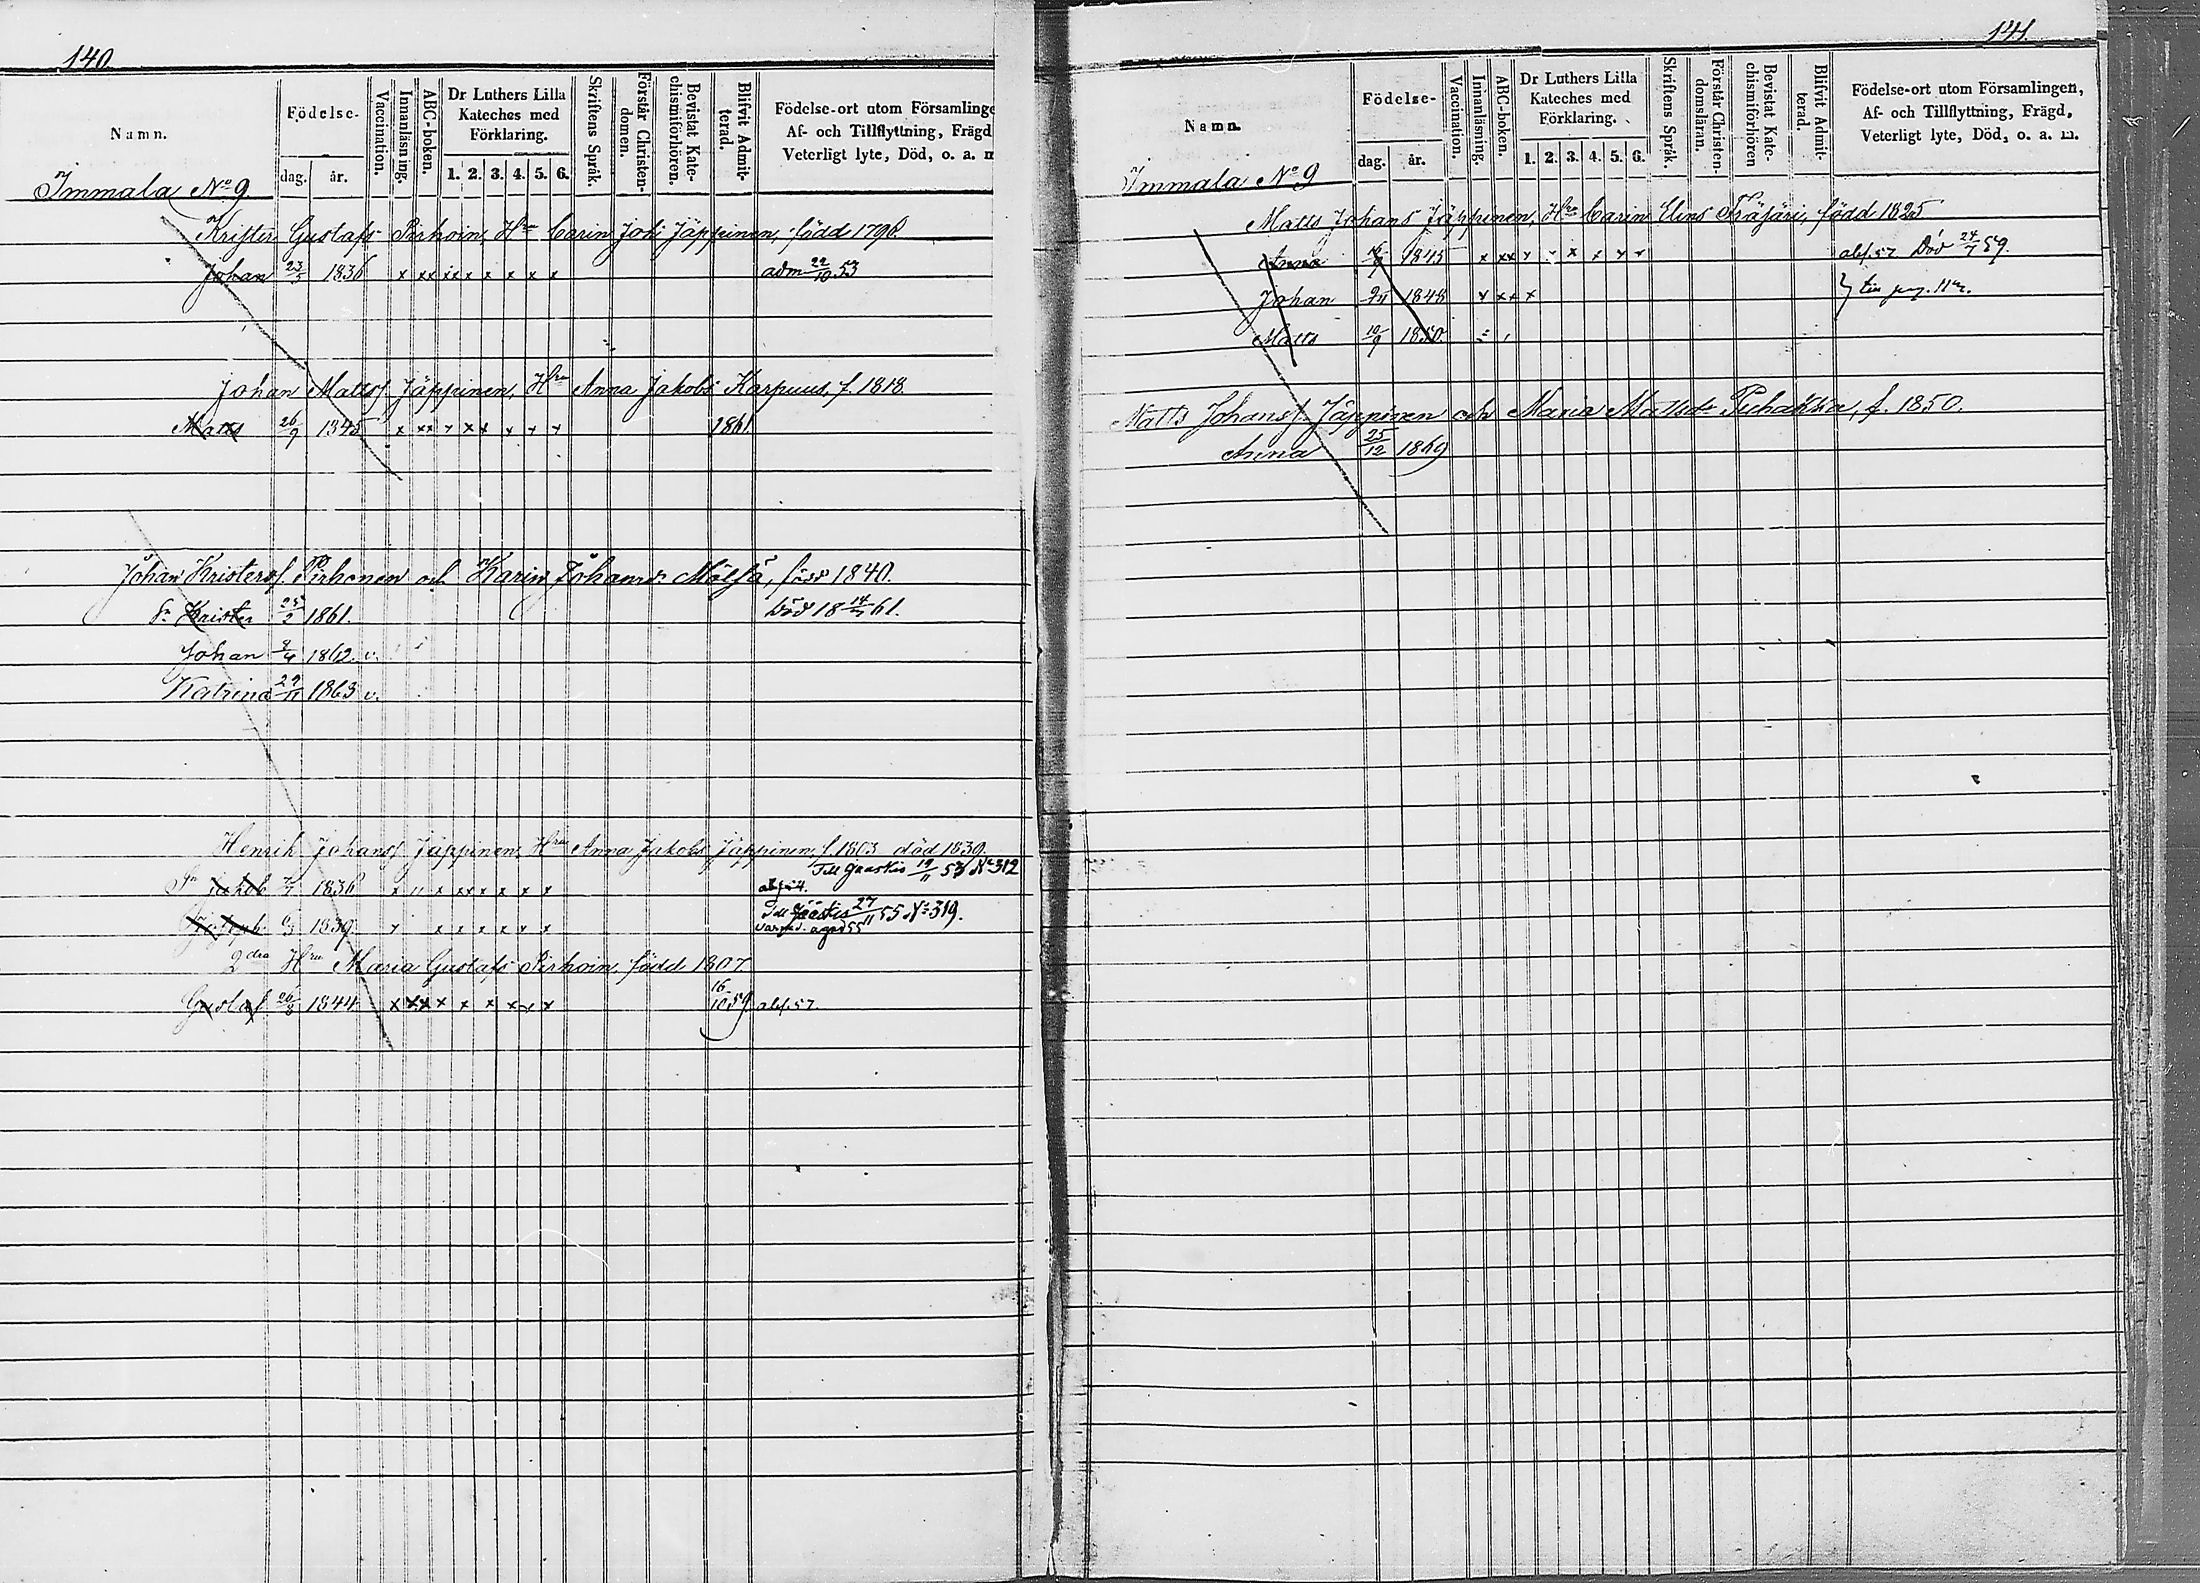 140.
Namn.
Födelse-
dag. år.
Vaccination.
Innanläsning.
ABC-boken.
Dr Luthers Lilla
Kateches med
Förklaring.
1. 2. 3. 4. 5. 6.
Skriftens Språk.
Förstår Christen-
domen.
Bevistat Kate-
chismiförhören.
Blifvit Admit-
terad.
Födelse-ort utom Församlinge
Af- och Tillflyttning, Frägd
Veterligt lyte, Död, o. a. m
Immala No 9
Krister Gustafs Pirhoin, Hru Carin Joh: Jäppinen, född 1796.
Johan 23/3 1836 x xx xx x x x x x adm 22/10 53
Johan Mattsf. Jäppinen, Hru Anna Jakobs Karpuus, f. 1818.
Matts 26/9 1845 x xx x xx x x x 1861.
Johan Kristersf. Pirhonen och Karin Johansd: Mölsä, född 1840.
Krister 25/2 1861. Död 18 61.
Johan 1862. v.
Katrina 29/11 1863 v.
Henrik Johansf. Jäppinen, Hru Anna Jakobs Jäppinen, f. 1803 död 1839.
Till Jaaskis 19/11 53 No 312
Jakob 1836 x x xx x x x x
1839. x x x x x x Till Jääskis 27/11 55 No 319.
2dra Hru Maria Gustafs Pirhoin, född 1807.
Gustaf 26/8 1844 x xxx x x x x x 16/10 59. abs. 57.
141.
Namn.
Födelse-
dag. år.
Vaccination.
Innanläsning.
ABC-boken.
Dr Luthers Lilla
Kateches med
Förklaring.
1. 2. 3. 4. 5. 6.
Skriftens Språk.
Förstår Christen-
domsläran.
Bevistat Kate-
chismiförhören
Blifvit Admit-
terad.
Födelse-ort utom Församlingen,
Af- och Tillflyttning, Frägd,
Veterligt lyte, Död, o. a. m.
Immala No 9
Matts Johans Jäppinen, Hru Carin Elins Träjäri, född 1825
Anna 1845 x xx x x x x x abs. 57. Död 24/7 59.
Johan 1848 x xxx
Matts 10/9 1850.
Matts Johansf. Jäppinen och Maria Mattsdr Puhakka, f. 1850.
Anna 25/12 1869